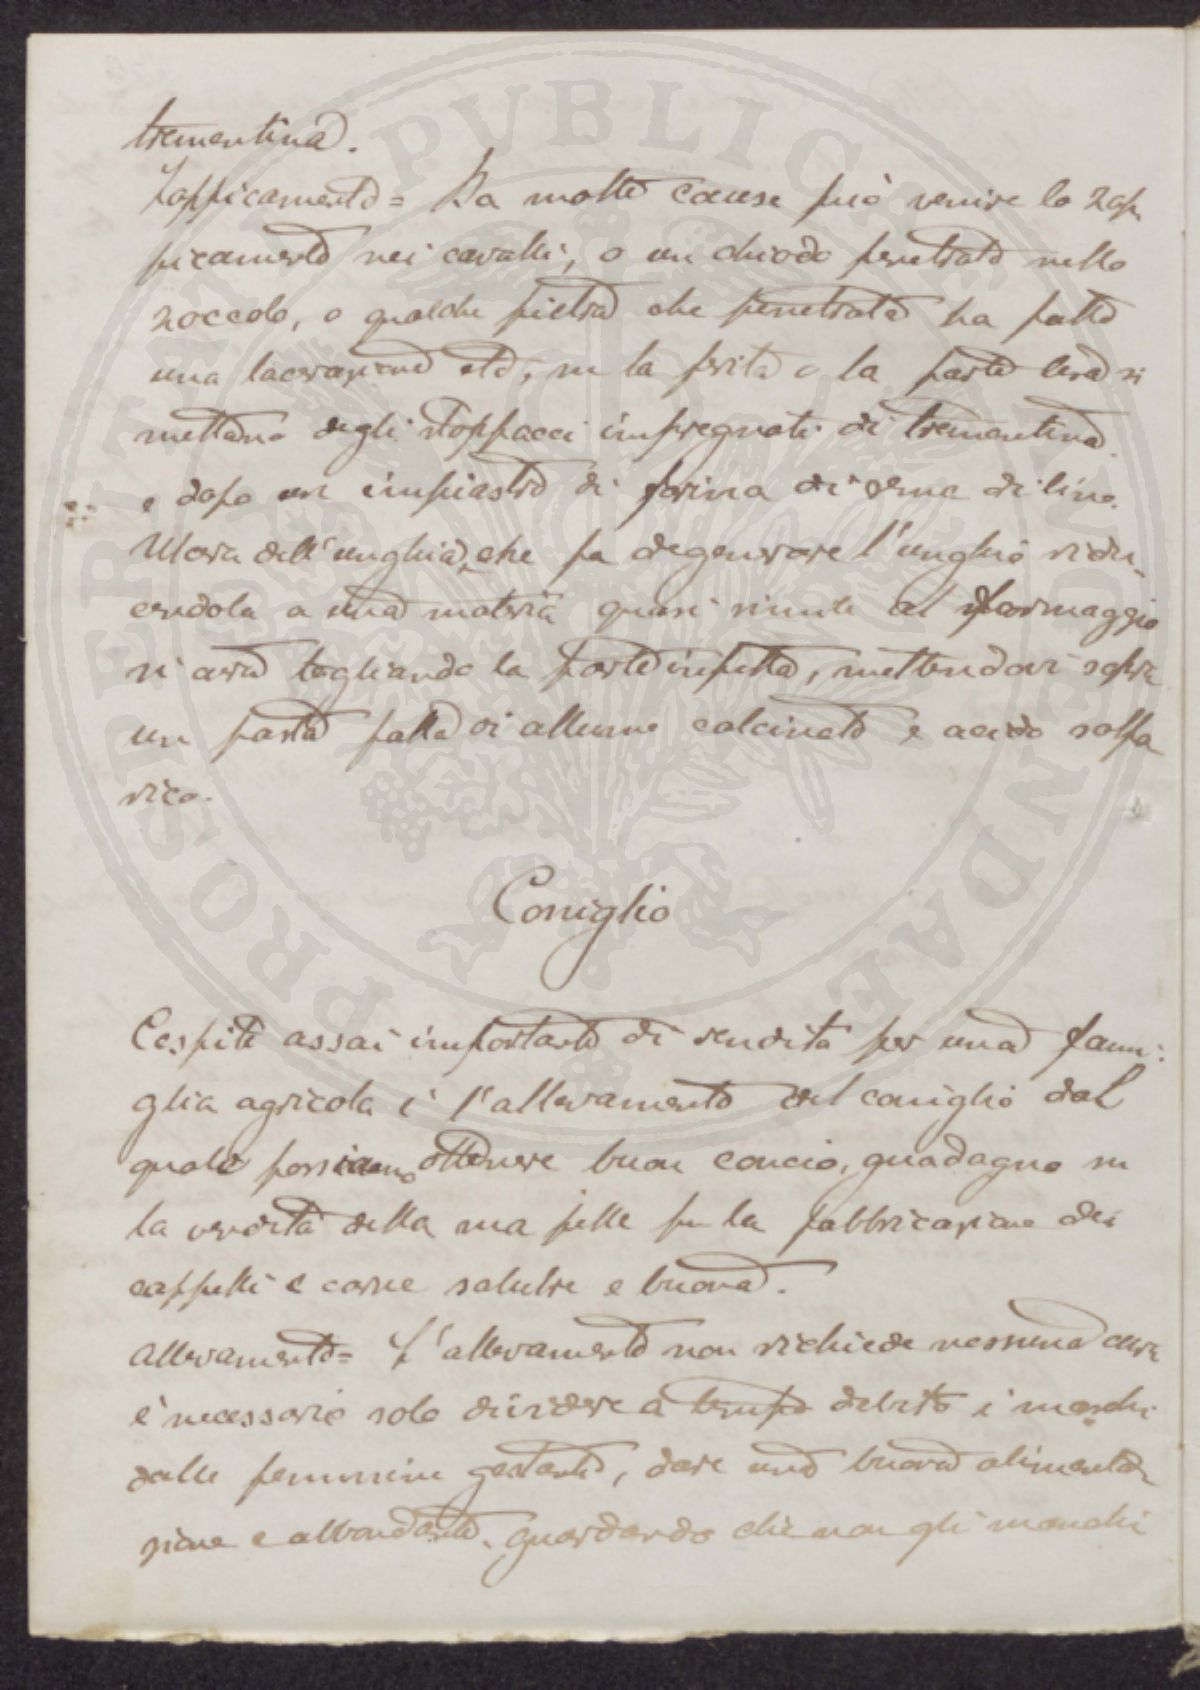 trementina.
Zoppicamento = Da molte cause può venire lo zop
picamento nei cavalli, o un chiodo penetrato nello
zoccolo, o qualche pietra che penetrata ha fatto
una lacerazione etc, su la ferita o la parte lesa si
mettano degli stoppacci impregnati di trementina
e dopo un impiastro di farina di seme di lino.
Ulcera dell'unghia, che fa degenerare l'unghia ridu-
cendola a una materia quasi simile al formaggio
si cura togliando la parte infetta, mettendovi sopra
un pasta fatta di allume calcinato e acido solfo
rico.
Coniglio
Cespite assai importante di rendita per una fami-
glia agricola è l'allevamento del coniglio dal
quale possiamo ottenere buon concio, guadagno su
la vendita della sua pelle per la fabbricazione dei
cappelli e carne salubre e buona.
Allevamento = L'allevamento non richiede nessuna cura
è necessario solo dividere a tempo debito i maschi
dalle femmine gestanti, dare una buona alimenta-
zione e abbondante, guardando che non gli manchi
PROSPERITATI PUBLICAE AUGENDAE